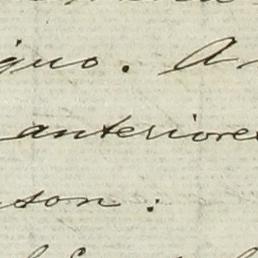 guo. A
anteriores
son: